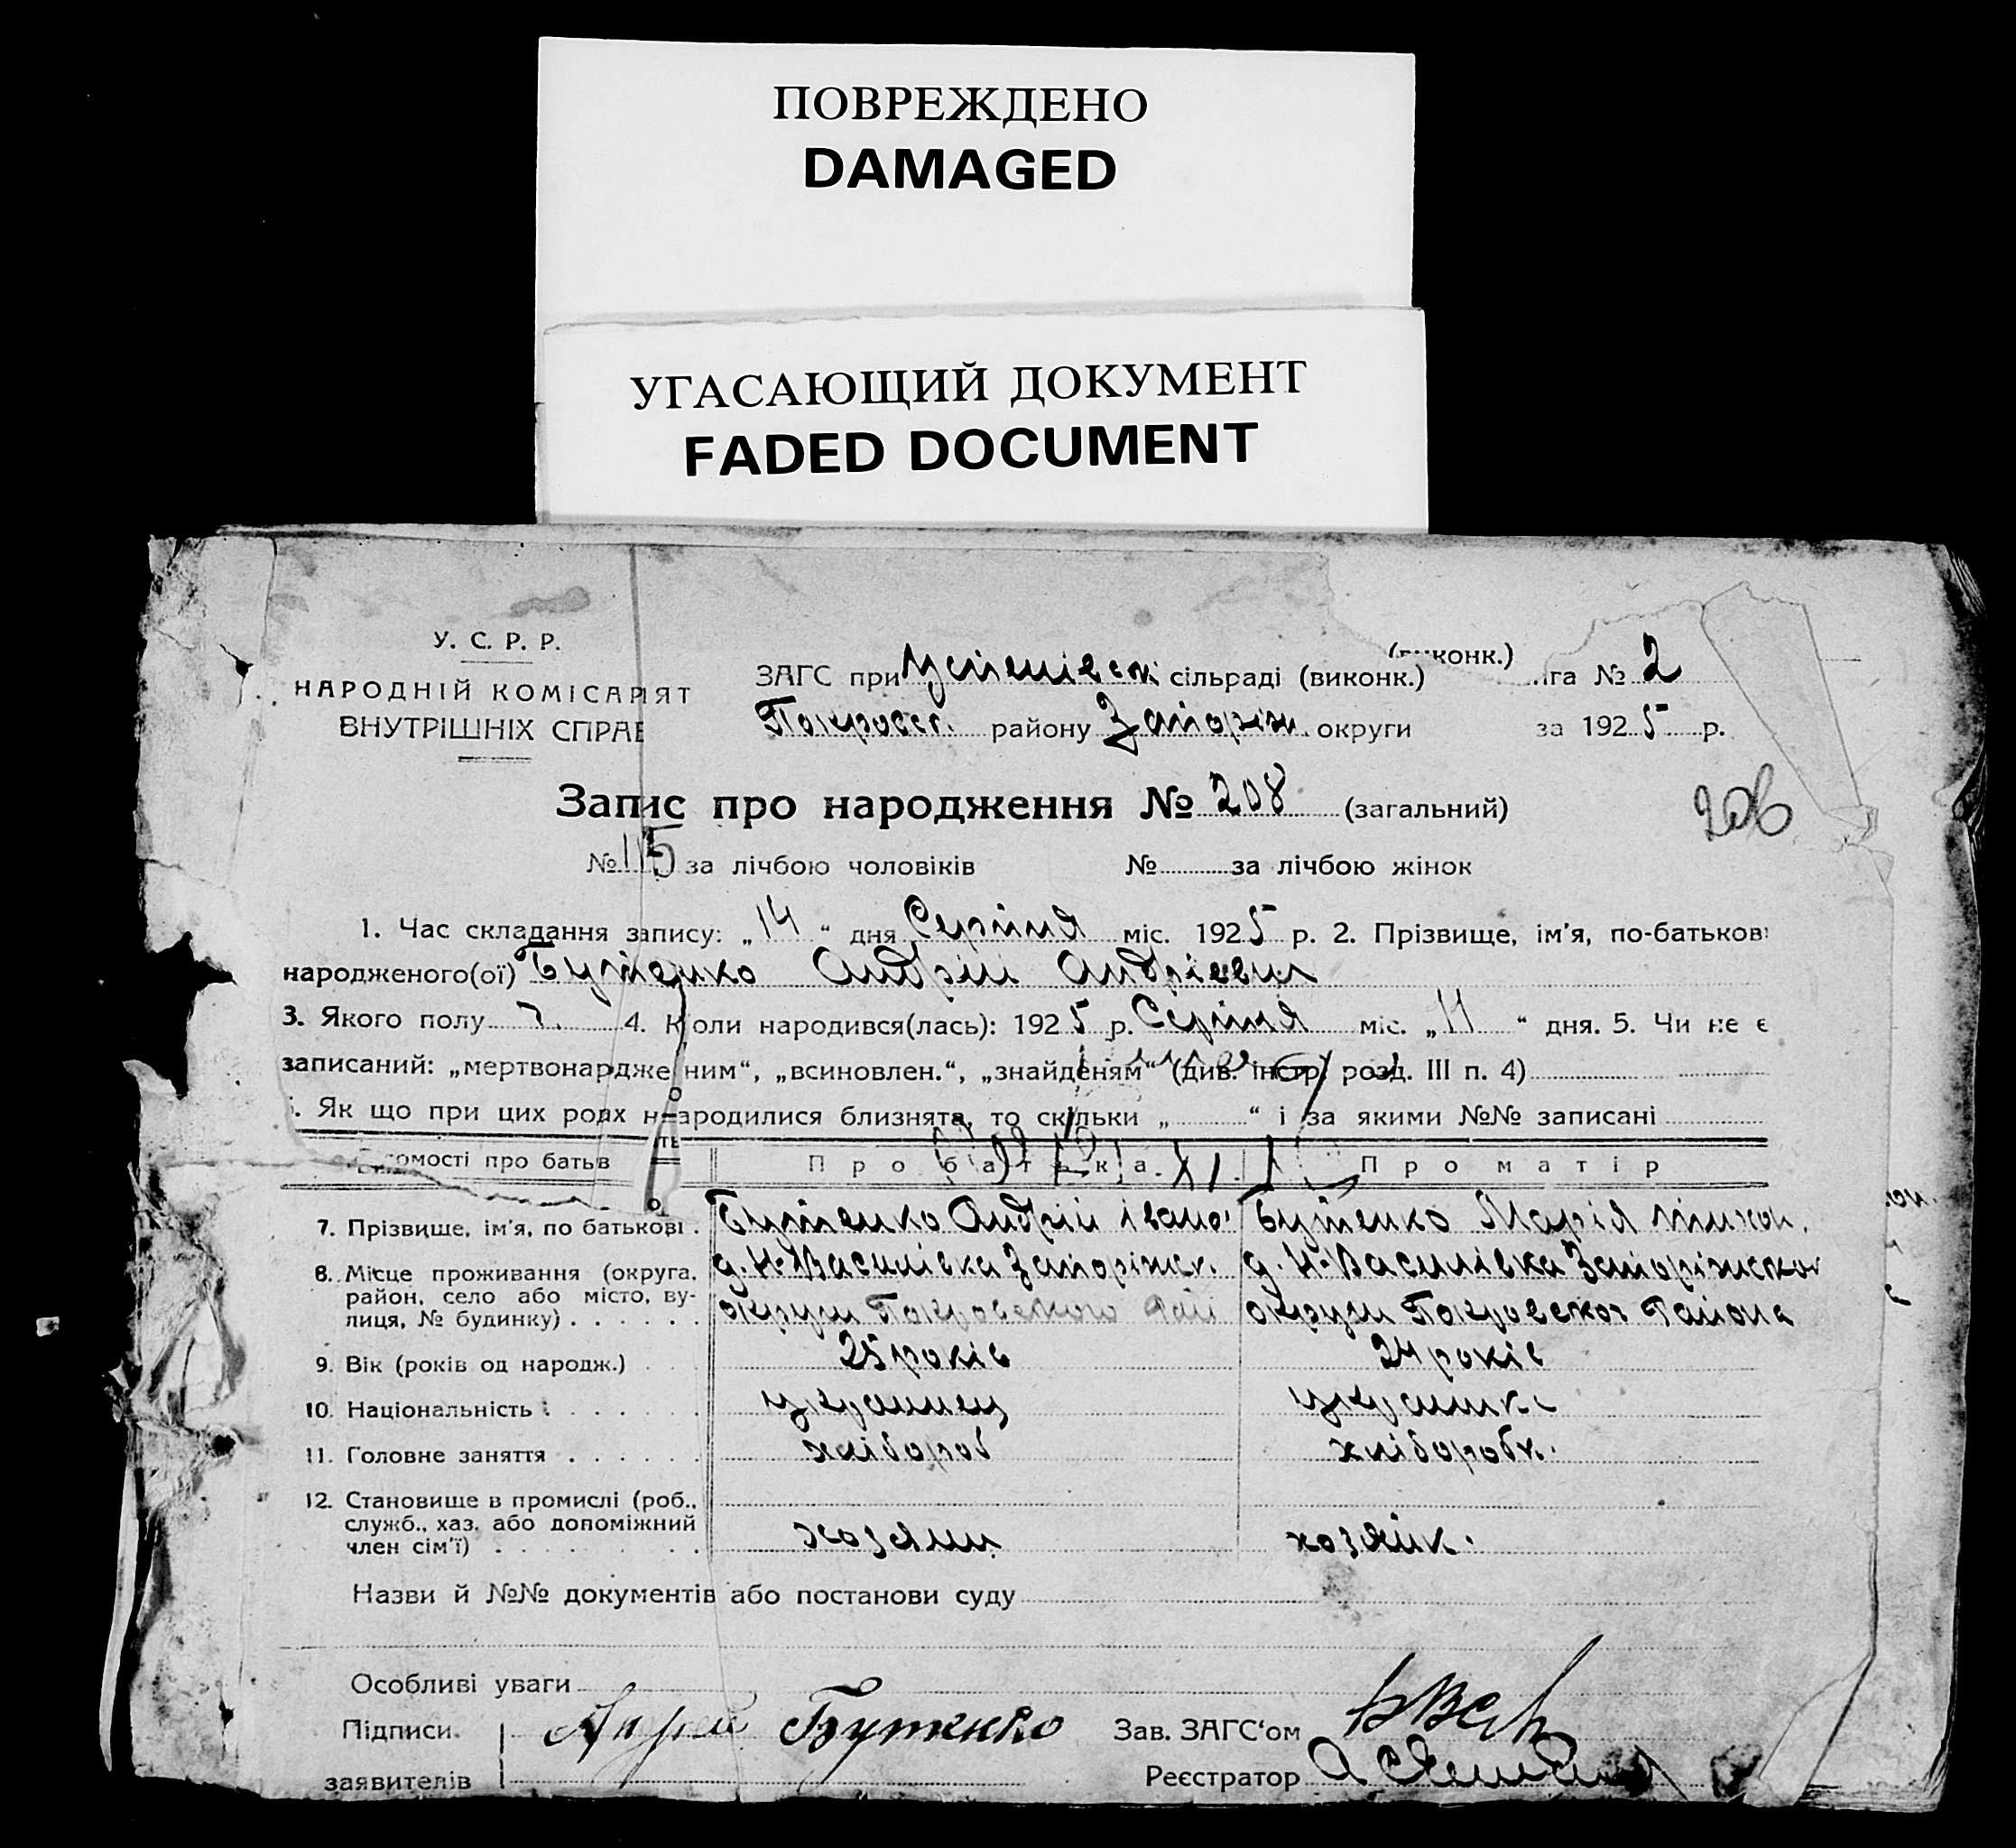 ПОВРЕЖДЕНО
DAMAGED
УГАСАЮЩИЙ ДОКУМЕНТ
FADED DOCUMENT
У. С. Р. Р.
НАРОДНІЙ КОМІСАРІЯТ
ВНУТРІШНІХ СПРАВ
(виконк.)
ЗАГС при Успенівск сільраді (виконк.) ига № 2
Покровск. району Запоріж. округи за 1925 р.
Запис про народження № 208 (загальний)
206
№ 115 за лічбою чоловіків № за лічбою жінок
1. Час складання запису: „14“ дня Серпня міс. 1925 р. 2. Прізвище, ім'я, по-батькові
народженого(ої) Бутенко Андрій Андрієвич
3. Якого полу ч. 4. Коли народився(лась): 1925 р. Серпня міс. „11“ дня. 5. Чи не є
записаний: „мертвонардженим“, „всиновлен.“, „знайденям“ (див. інстр. розд. III п. 4)
. Як що при цих родх народилися близнята, то скільки „ “ і за якими №№ записані
омості про батьв Про батька Про матір
7. Прізвище, ім'я, по батькові . Бутенко Андрій Івано. Бутенко Марія
8. Місце проживання (округа, д. Н-Василівка Запоріжск. д. Н-Василівка Запоріжскои
район, село або місто, ву-
лиця, № будинку) . . . . . . округи Покровского Рай округи Покровског Района
9. Вік (років од народж.) . 25 років 24 років
10. Національність . . . . . . украинец украинка
11. Головне заняття . . . . . . хлібороб хліборобк.
12. Становище в промислі (роб.,
служб., хаз. або допоміжний
член сім'ї) . . . . . . . . . хозяин хозяйк.
Назви й №№ документів або постанови суду
Особливі уваги
Підписи Андрей Бутенко Зав. ЗАГС'ом
заявителів Реєстратор